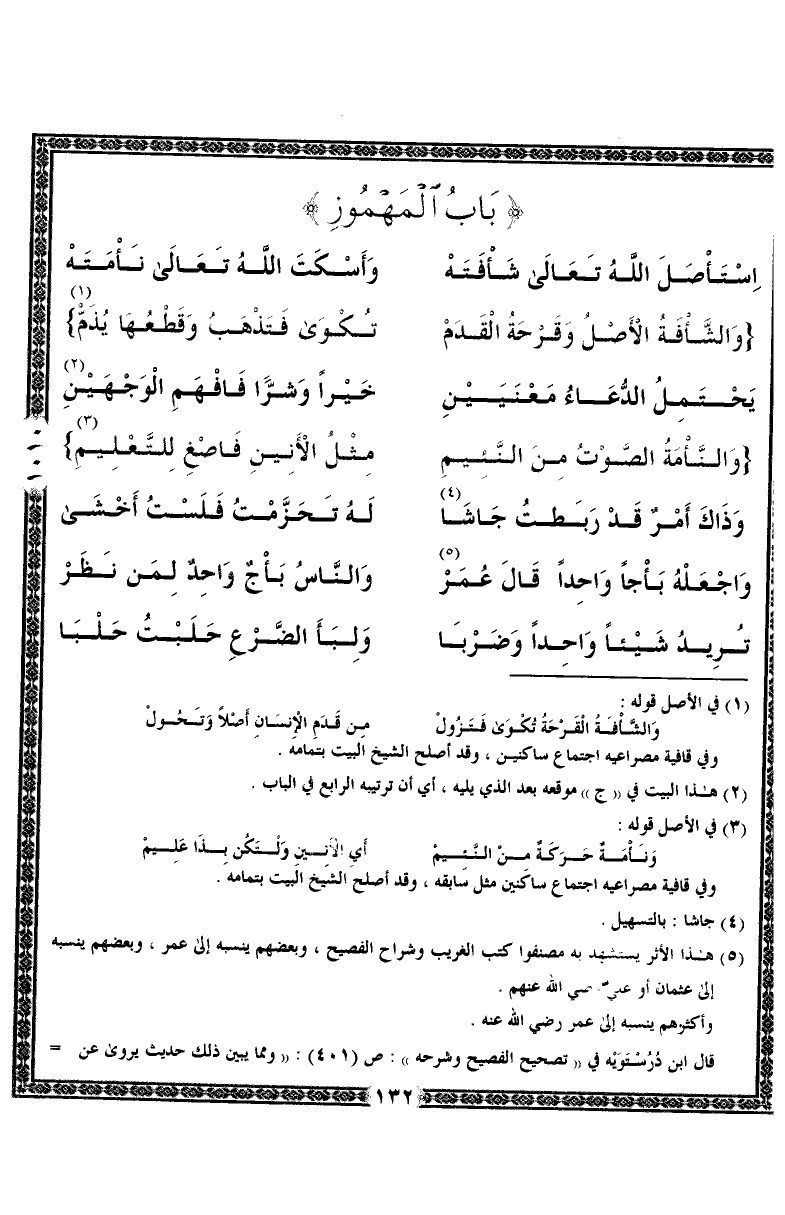 ﴿ بَابُ الْمَهْمُوزِ ﴾
اِسْتَأْصَلَ اللَّهُ تَعَالَىٰ شَأْفَتَهْ وَأَسْكَتَ اللَّهُ تَعَالَىٰ نَأْمَتَهْ
{وَالشَّأْفَةُ الْأَصْلُ وَقَرْحَةُ الْقَدَمْ تُكْوَىٰ فَتَذْهَبُ وَقَطْعُهَا يُذَمْ} (١)
يَحْتَمِلُ الدُّعَاءُ مَعْنَيَيْنِ خَيْراً وَشَرًّا فَافْهَمِ الْوَجْهَيْنِ (٢)
{وَالنَّأْمَةُ الصَّوْتُ مِنَ النَّئِيمِ مِثْلُ الْأَنِينِ فَاصْغِ لِلتَّعْلِيمِ} (٣)
وَذَاكَ أَمْرٌ قَدْ رَبَطتُ جَاشَا (٤) لَهُ تَحَزَّمْتُ فَلَسْتُ أَخْشَىٰ
وَاجْعَلْهُ بَأْجاً وَاحِداً قَالَ عُمَرْ (٥) وَالنَّاسُ بَأْجٌ وَاحِدٌ لِمَن نَظَرْ
تُرِيدُ شَيْئاً وَاحِداً وَضَرْبَا وَلِبَأَ الضَّرْعِ حَلَبْتُ حَلْبَا
(١) في الأصل قوله :
وَالشَّأْفَةُ الْقَرْحَةُ تُكْوَىٰ فَتَزُولْ مِن قَدَمِ الْإِنسَانِ أَصْلاً وَتَحُولْ
وفي قافية مصراعيه اجتماع ساكنين ، وقد أصلح الشيخ البيت بتمامه .
(٢) هـٰذا البيت في « ج » موقعه بعد الذي يليه ، أي أن ترتيبه الرابع في الباب .
(٣) في الأصل قوله :
وَنَأْمَةٌ حَرَكَةٌ مِنْ النَّئِيمْ أَيِ الْأَنِينِ وَلْتَكُن بِذَا عَلِيمْ
وفي قافية مصراعيه اجتماع ساكنين مثل سابقه ، وقد أصلح الشيخ البيت بتمامه .
(٤) جاشا : بالتسهيل .
(٥) هـٰذا الأثر يستشهد به مصنفوا كتب الغريب وشراح الفصيح ، وبعضهم ينسبه إلىٰ عمر ، وبعضهم ينسبه
إلىٰ عثمان أو علي الله عنهم .
وأكثرهم ينسبه إلىٰ عمر رضي الله عنه .
قال ابن دُرُسْتَوَيْه في « تصحيح الفصيح وشرحه » : ص (٤٠١) : « ومما يبين ذلك حديث يروىٰ عن =
١٣٢